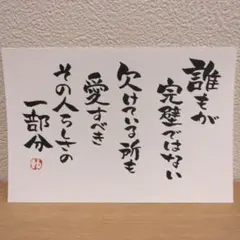 誰もが
完璧ではない
欠けている所も
愛すべき
その人らしさの
一部分